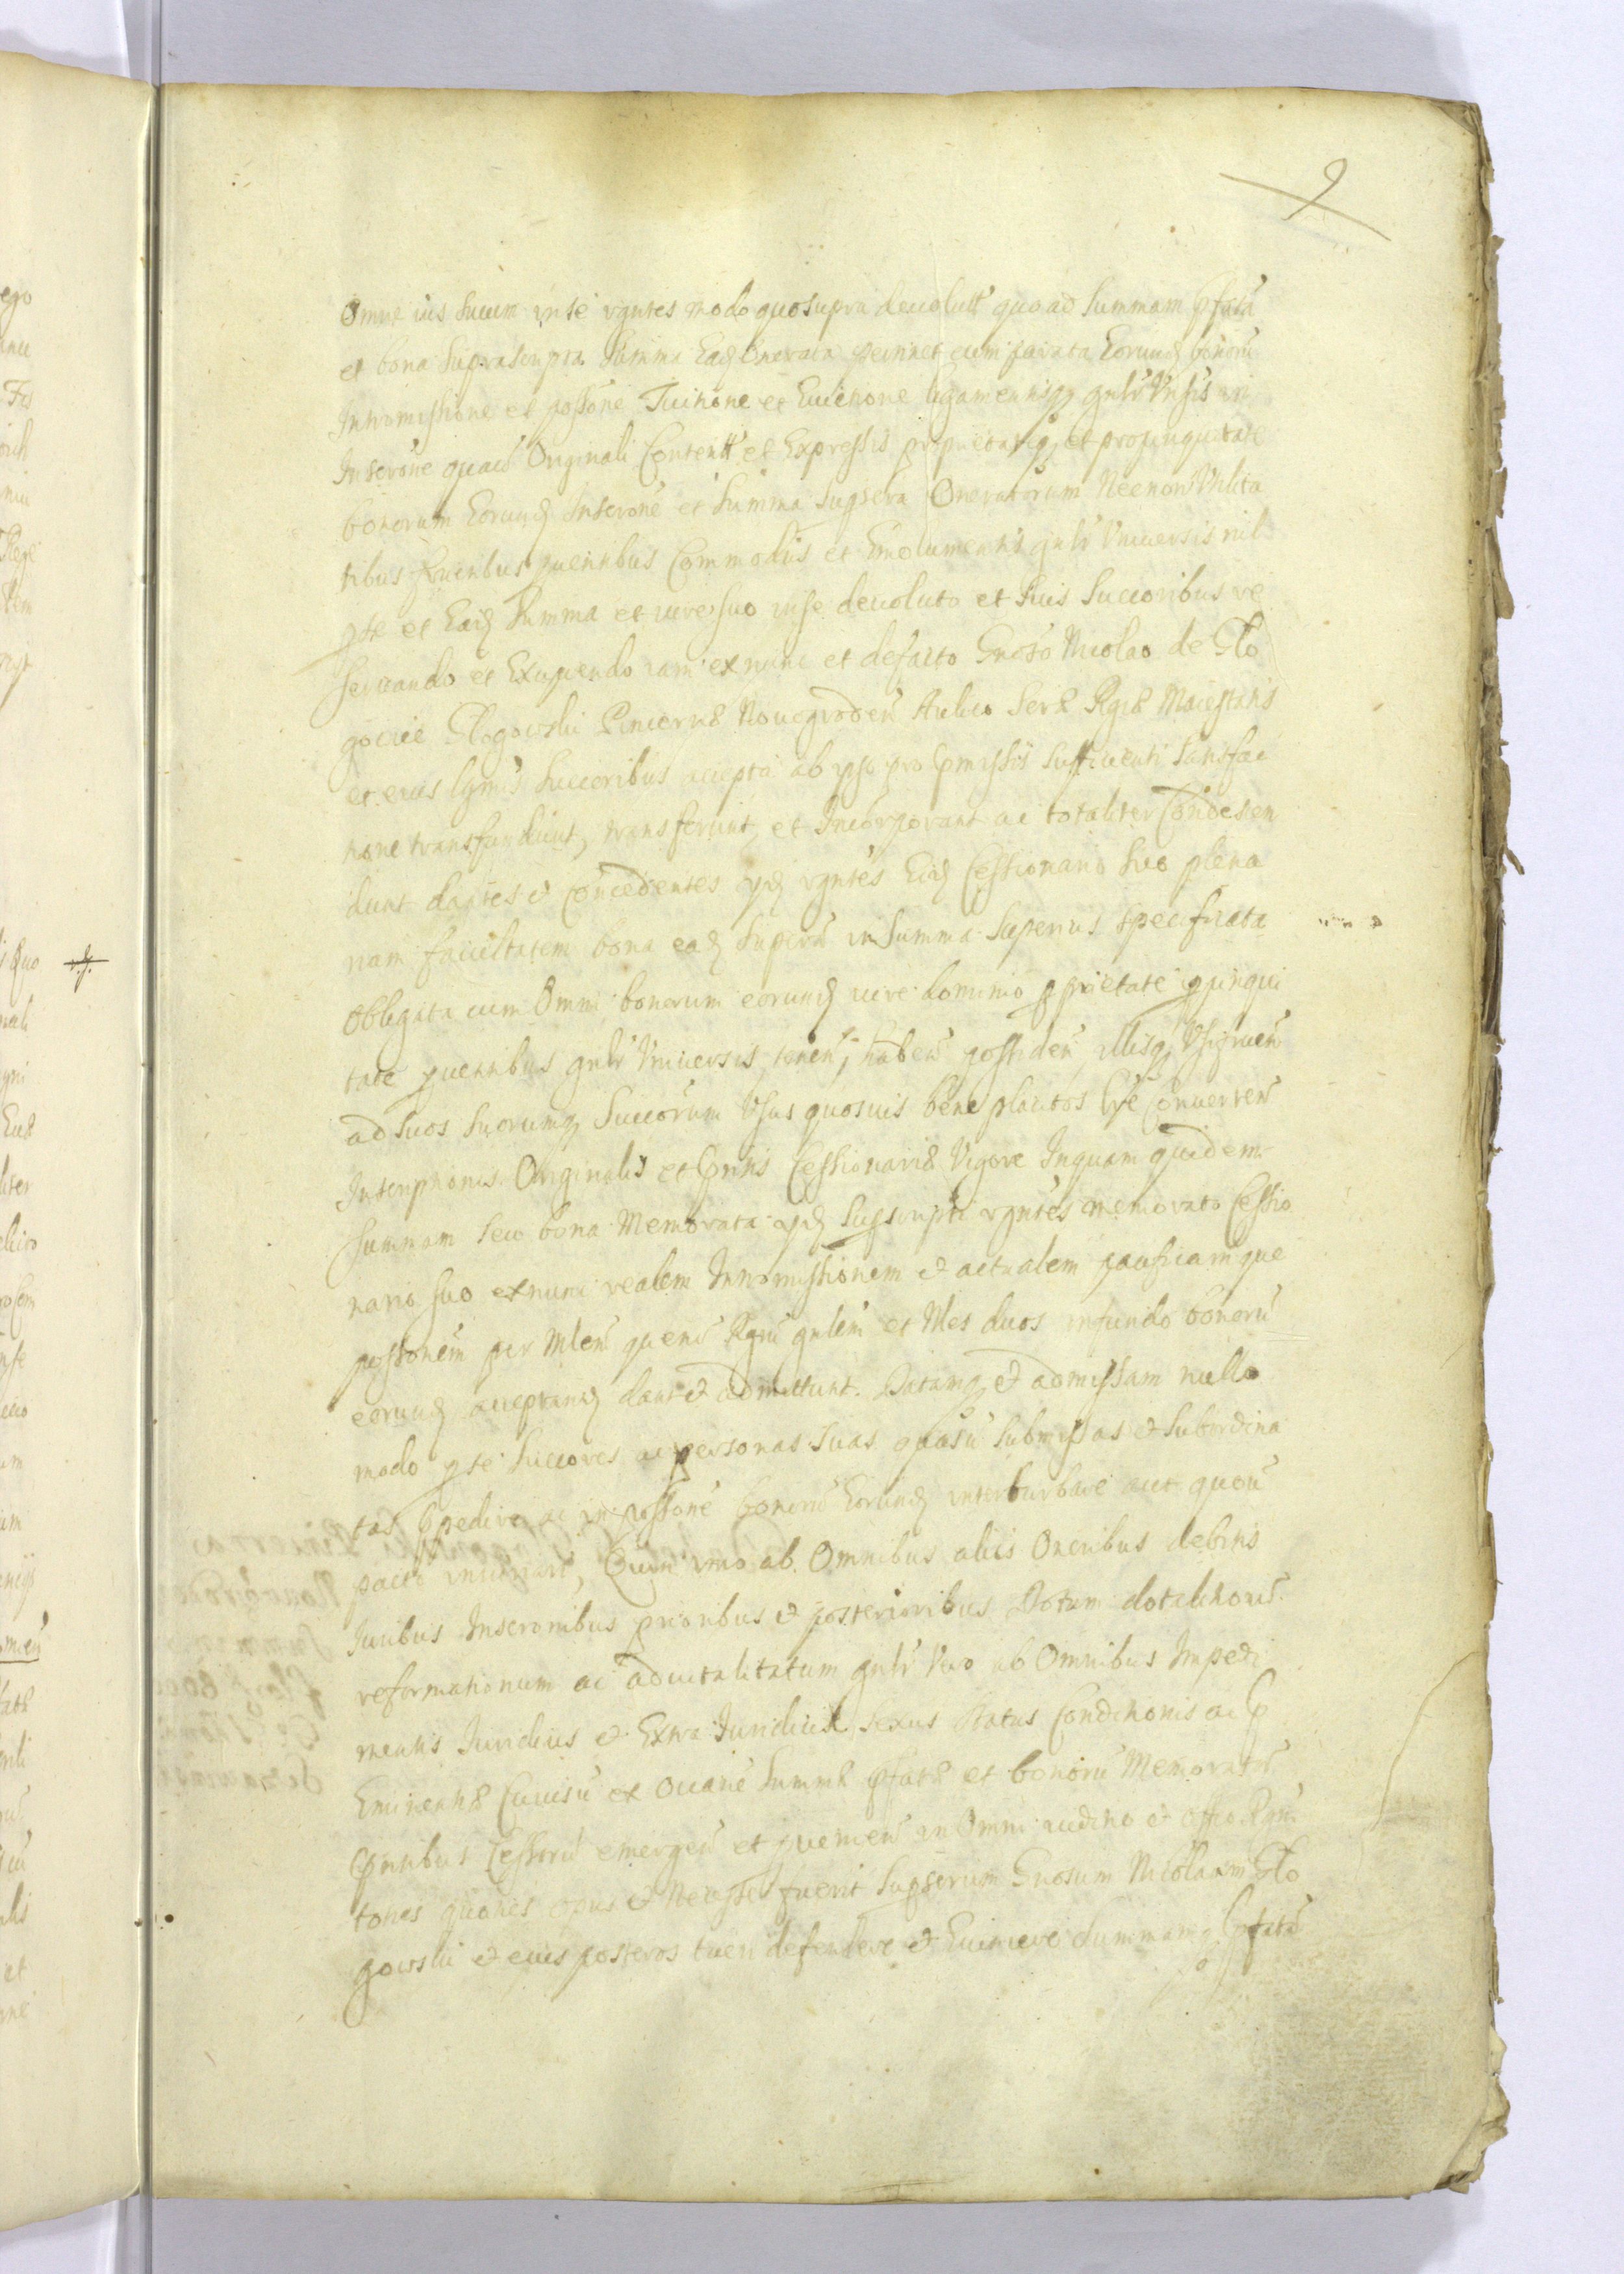 9
Omne ius suum in se rgntes modo quo supra devolutt quo ad Summam pfata
et bona suprascripta Summa Eadē Onerata pertinet cum parata Eorundē bonorū
Intromissione et possone Tuitione et Evictione ligamentisq gnlr Unsis in
Inscrone quaev Originali Contentt et Expressis proprietateq et propinquitate
bonorum Eorundē Inscrone et Summa supscra Oneratorum Necnon Utilita
tibus fructibus pventibus Commodis et Emolumentis gnlr Universis nil
p se et Eadē Summa et iure suo in se devoluto et Suis Succoribus re
servando et Excipiendo iam ex nunc et de facto Gnoso Nicolao de Glo
gowie Glogowski Pincernæ Novogroden Aulico Seræ Rgiæ Maiestatis
et eius lgmis Succoribus accepta ab ipso pro pmissis sufficienti Satisfac
tione transfundunt, transferunt, et Incorporant ac totaliter Condescen
dunt dantes et Concedentes ipē rgntes Eidē Cessionario Suo plena
riam facultatem bona eadē Supius in Summa Superius specificata
Obligata cum Omni bonorum eorundē iure dominio pprietate ppinqui
tate pventibus gnlr Universis tenen, haben possiden illisq Utifruen
ad Suos Suorumq Succorum Usus quosvis bene placitos lre Converten
Inscriptionis Originalis et pntis Cessionariæ Vigore Inquam quidem
Summam seu bona Memorata ipē Supscripti rgntes memorato Cessio
nario suo ex nunc realem Intromissionem et actualem pacificamque
possonem per Mlem quemv Rgni gnlem et Nles duos in fundo bonorū
eorundē acceptandē dant et admittunt. Datamq et admissam nullo
modo p se Succores ac personas Suas quasv Submissas et Subordina
tas ppedire ac in possone bonorū Eorundē interturbare aut quov
pacto iniuriari, Quin imo ab Omnibus aliis Oneribus debitis
Iuribus Inscronibus prioribus et posterioribus Dotum dotalitiorū
reformationum ac advitalitatum gnlr Vero ab Omnibus Impedi
mentis Iuridicis et Extra Iuridicis sexus Status Conditionis ac p
Eminentiæ Cuiusv ex Ovane Summæ pfatæ et bonorū Memoratorū
pntibus Cessorū emergen et pvenien in Omni iuditio et Offo Rgni
toties quoties opus et Necesse fuerit Supscrum Gnosum Nicolaum Glo
gowski et eius posteros tueri defendere et Evincere Summamq pfatā